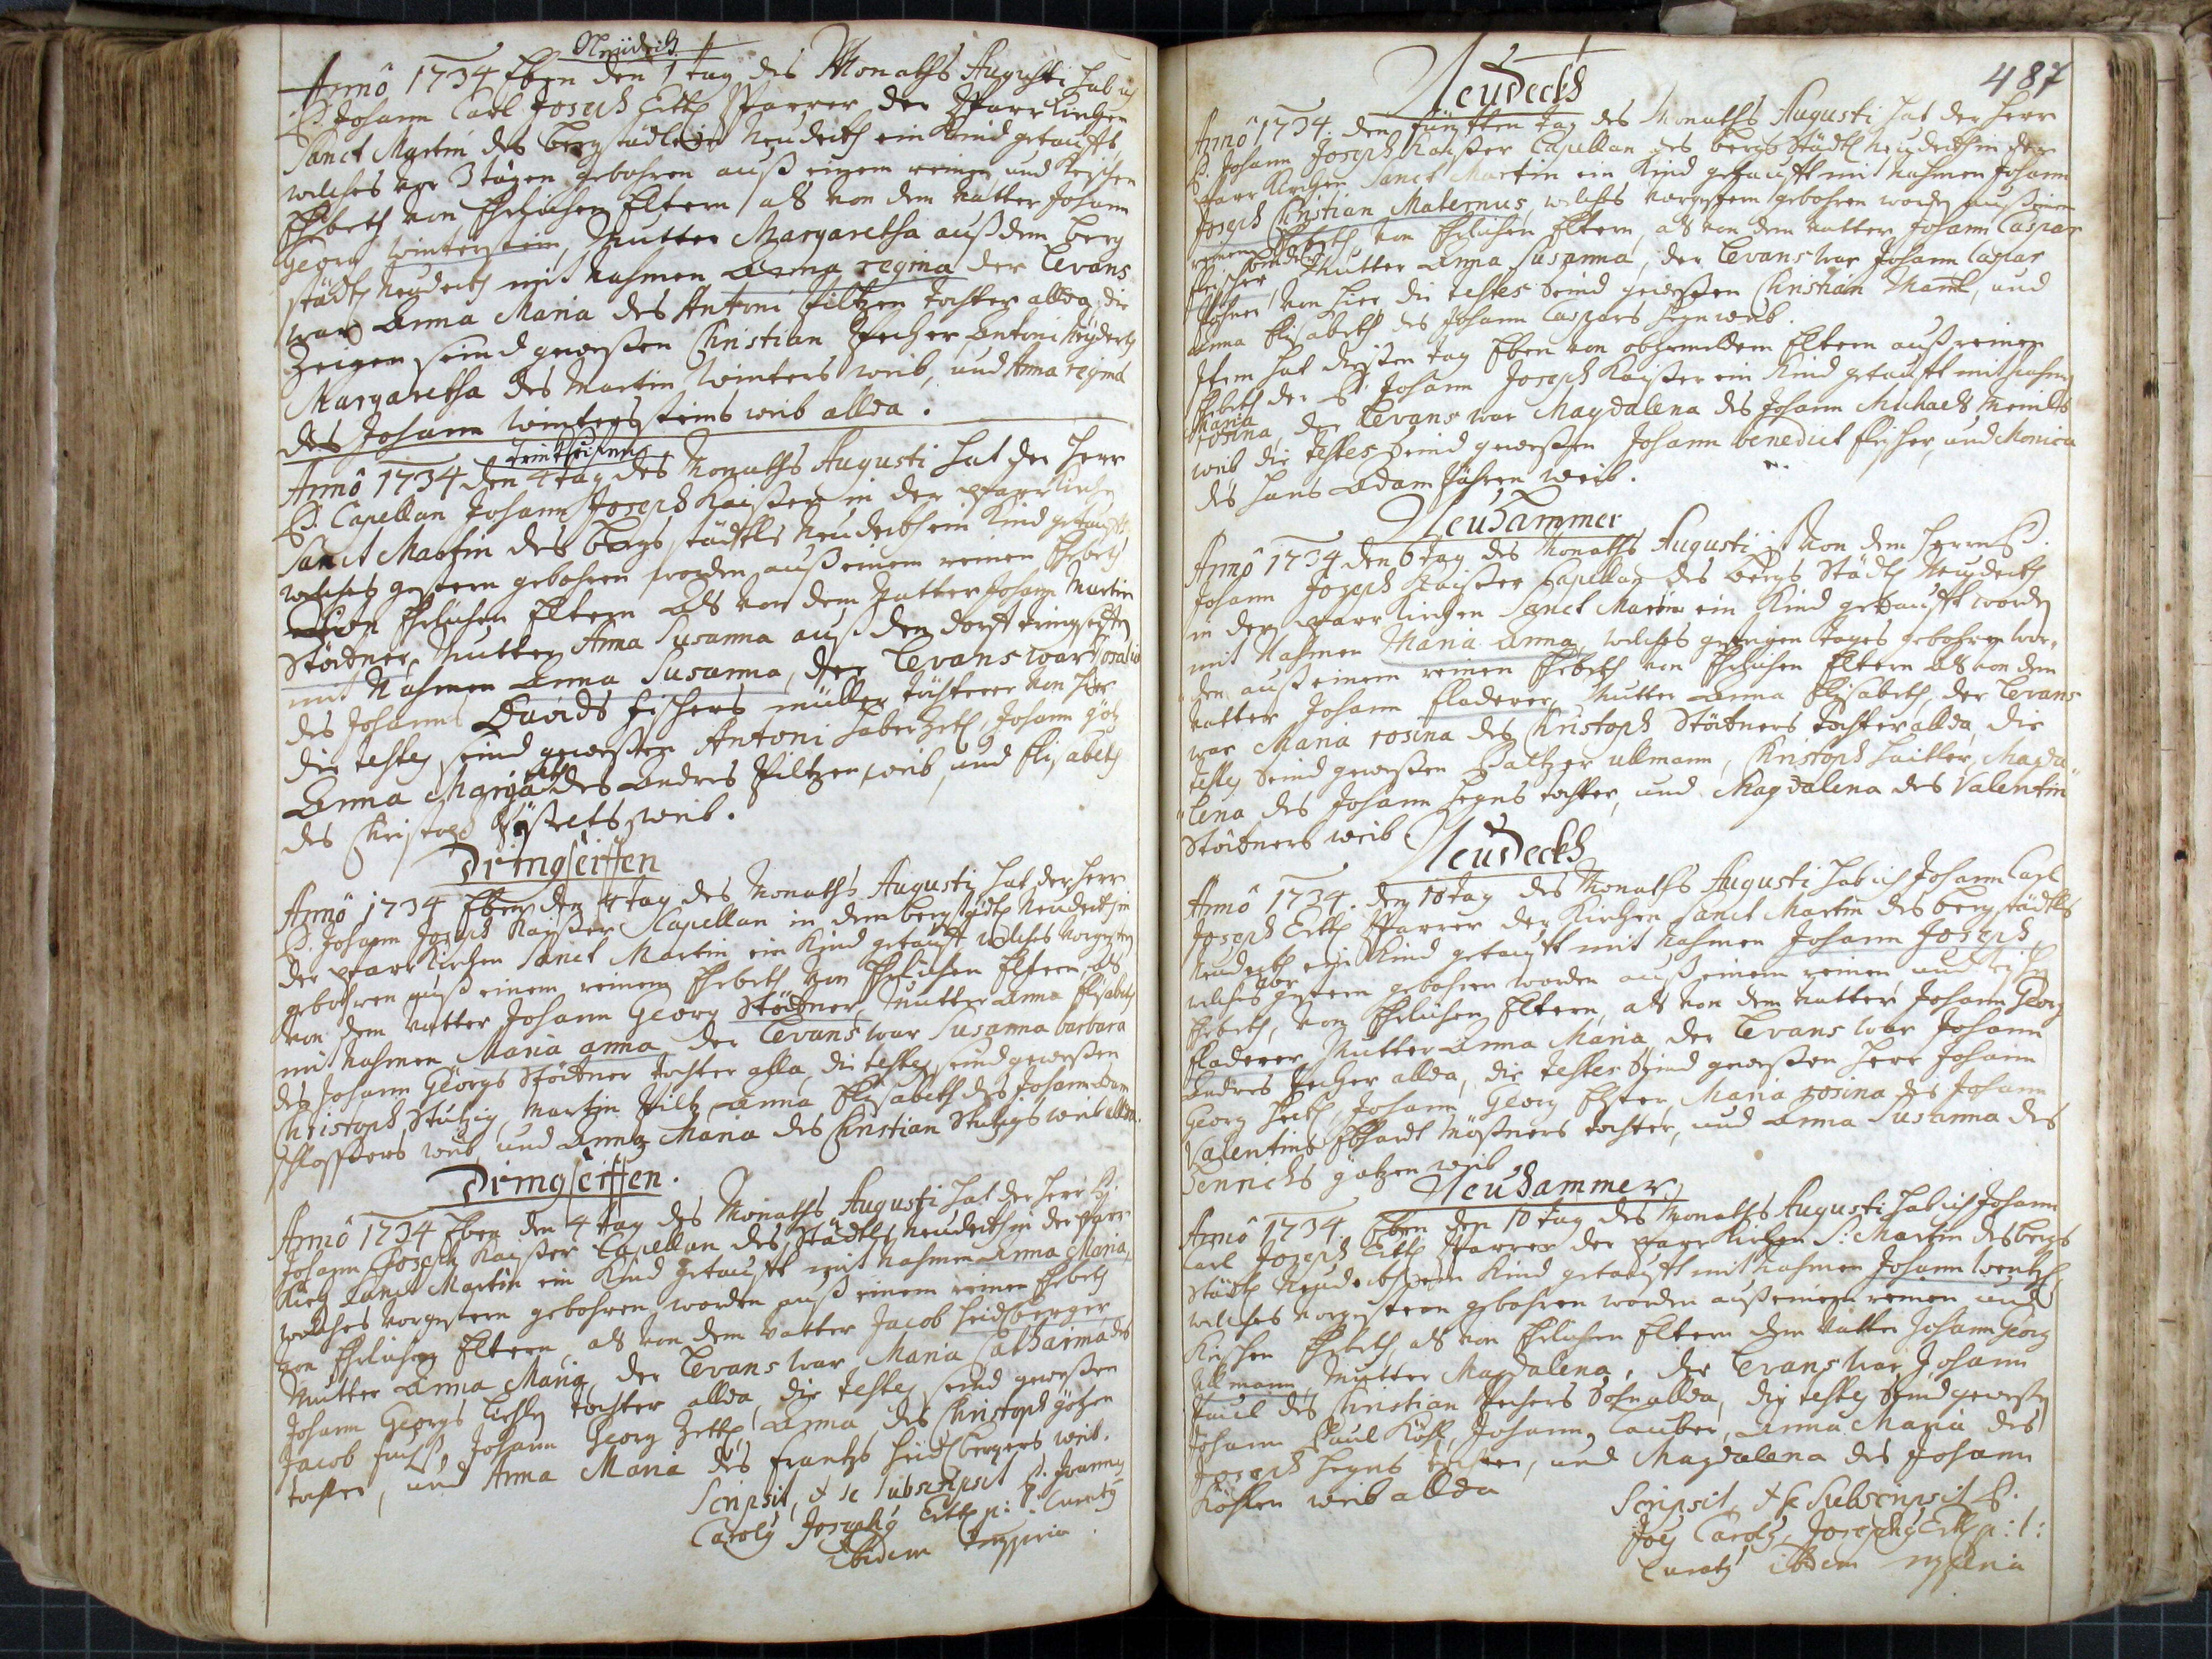 Neudeck
Anno 1734 Eben den 1 tag des Monaths Augusti hab ich
P. Johann Carl Joseph Ertl Pfarrer der Pfarr Kirchen
Sanct Martin des Bergstädtlein Neudeck ein Kind getaufft,
welches vor 3 tagen gebohren auß einem reinen und Keischen
Ehebeth von Ehrlichen Eltern, als von dem Vatter Johann
Georg Winterstein, Mutter Margaretha auß dem berg
städtl Neudeck mit Nahmen Anna regina der Levans
war Anna Maria des Antoni Piltzen tochter allda, die
Zeigen seind gewesen Christian Pecher Antoni
Margaretha des Martin Winters weib, und Anna regina
des Johann Wintersteins weib allda.
Anno 1734 den 4 tag des Monaths Augusti hat der Herr
P. Capellan Johann Joseph Kaißer in der Pfarr Kirche
Sanct Martin des bergstädtls Neudeck ein Kind getaufft,
welches gestern gebohren worden auß einem reinen Ehebeth
von Ehrlichen Eltern als von dem Vatter Johann Martin
Störtner, Mutter Anna Susanna auß dem dorff tringseiffen
mit Nahmen Anna Susanna, der Levans war rosalia
des Johanns Davids Fischers müller tochter von hier
die testes seind gewesen Antoni Haberzetl, Johann Götz
Anna Margareth des Andres Piltzen weib, und Elisabeth
des Christoph weib.
Dringseiffen
Anno 1734 Eben den 4 tag des Monaths Augusti hat der Herr
P. Johann Joseph Kaißer Capellan in dem bergstädtl Neudeck in
der Pfarr Kirchen Sanct Martin ein Kind getaufft welches vorgestern
gebohren auß einem reinem Ehebeth von Ehrlichen Eltern als
von dem Vatter Johann Georg Störtner, Mutter Anna Elisabeth
mit Nahmen Maria anna der Levans war Susanna barbara
des Johann Georgs Störtner tochter allda, die testes seind gewesen
Christoph Stutzig, Martin Piltz, Anna Elisabeth des Johann Adam
schlossers weib, und Anna Maria des Christian Stutzigs weib allda.
Dringseiffen.
Anno 1734 Eben den 4 tag des Monaths Augusti hat der Herr P.
Johann Joseph Kaißer Capellan des Städtls Neudeck in der Pfarr
Kirch Sanct Martin ein Kind getaufft mit Nahmen Anna Maria,
welches vorgestern gebohren worden auß einem reinen Ehebeth
von Ehrlichen Eltern, als von dem Vatter Jacob Heidlberger
Mutter Anna Maria, der Levans war Maria Catharina des
Johann Georgs tochter allda, die testes seind gewesen
Jacob Johann Georg Zettl, Anna des Christoph götzen
tochter, und Anna Maria des Frantz Heidlbergers weib.
Scripsit, & se subscripsit P. Joannes
Carolus Josephus Ertl p: t: Curatus
ibidem mppria
487
Neudeckh
Anno 1734. den fünfften tag des Monaths Augusti hat der Herr
P. Johann Joseph Kaißer Capellan des berg Städtl Neudeck in der
Pfarr Kirchen Sanct Martin ein Kind getaufft mit Nahmen Johann
Joseph Christian Maternus, welches vorgestern gebohren worden auß einem
reinen Ehebeth von Ehrlichen Eltern, als von dem Vatter Johann Caspar
Fleischer Mutter Anna Susanna, der Levans war Johann Caspar
von hier, die testes seind gewesen Christian und
Anna Elisabeth des Johann Caspars weib.
Item hat diesen tag Eben von obgemeldten Eltern auß reinen
Ehebeth der P. Johann Joseph Kaißer ein Kind getaufft mit Nahmen
Maria
rosina, der Levans war Magdalena des Johann Michaels
weib die testes seind gewesen Johann benedict Fischer, und Monica
des Hans Adam weib.
Neuhammer
Anno 1734 den 6 tag des Monaths Augusti ist von dem Herrn P.
Johann Joseph Kaißer Capellan des Bergs Städtl Neudeck
in der Pfarr Kirchen Sanct Martin ein Kind getaufft worden
mit Nahmen Maria Anna, welches gestrigen tages gebohren wor-
den auß einem reinen Ehebeth von Ehrlichen Eltern als von dem
Vatter Johann Fladerer, Mutter Anna Elisabeth, der Levans
war Maria rosina des Christoph Störtners tochter allda, die
testes seind gewesen Baltzer ullmann, Christoph Magda-
lena des Johann tochter, und Magdalena des Valentin
Störtners weib
Neudeckh
Anno 1734. den 10 tag des Monaths Augusti hab ich Johann Carl
Joseph Ertl Pfarrer der Kirchen Sanct Martin des bergstädtls
Neudeck ein Kind getaufft mit Nahmen Johann Joseph,
welches vorgestern gebohren worden auß einem reinen und
Ehebeth, von Ehrlichen Eltern, als von dem Vatter Johann Georg
Fladerer, Mutter Anna Maria, der Levans war Johann
Andres Pecher allda, die testes seind gewesen Herr Johann
Georg Johann Georg Maria rosina des Johann
Valentins Ebhardt tochter, und Anna Susanna des
Henrichs götzen weib
Neuhammer
Anno 1734. Eben den 10 tag des Monaths Augusti hab ich Johann
Carl Joseph Ertl Pfarrer der Pfarr Kirchen S: Martin des bergs
Städtl Neudeck ein Kind getaufft mit Nahmen Johann Wentzl,
welches vorgestern gebohren worden auß einem reinen und
Keischen Ehebeth, als von Ehrlichen Eltern dem Vatter Johann Georg
Ullmann, Mutter Magdalena, der Levans war Johann
Paul des Christian Pechers Sohn allda, die testes seind gewesen
Johann Paul Köhl, Johann Tauber, Anna Maria des
Joseph tochter, und Magdalena des Johann
Köhlen weib allda
Scripsit, & se Subscripsit P.
Joes Carolus Josephus Ertl p: t:
Curatus ibidem mppria